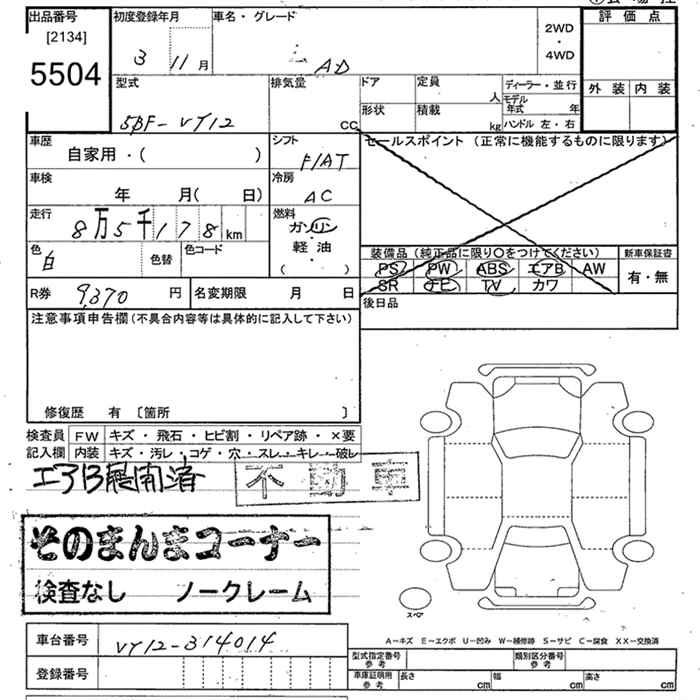 出品番号 初度登録年月 車名・グレード 評価点
[2134]
5504
3 11月 AD
2WD
・
4WD
外装 内装
型式 排気量 ドア 定員 ディーラー・並行
人 モデル年式 年
5BF-VY12 CC 形状 積載 kg ハンドル 左・右
車歴 シフト セールスポイント (正常に機能するものに限ります)
自家用・( ) F/AT
車検 冷房
年 月( 日) AC
走行 燃料
8万5千178km ガソリン
軽・油
( ・ )
色 色替 色コード
白
装備品 (純正品に限り〇をつけてください) 新車保証書
PS PW ABS エアB AW 有・無
SR ナビ TV カワ
R券 9,370 円 名変期限 月 日
後日品
注意事項申告欄 (不具合内容等は具体的に記入して下さい)
修復歴 有 〔箇所 〕
検査員 FW キズ・飛石・ヒビ割・リペア跡・×要
記入欄 内装 キズ・汚レ・コゲ・穴・スレ・キレ・破レ
エアB展開済 不動車
そのまんまコーナー
検査なし ノークレーム
スペア
A-キズ E-エクボ U-凹み W-補修跡 S-サビ C-腐食 XX-交換済
車台番号 VY12-314014
登録番号
型式指定番号 参考 類別区分番号 参考
車庫証明用 参考 長さ cm 幅 cm 高さ cm